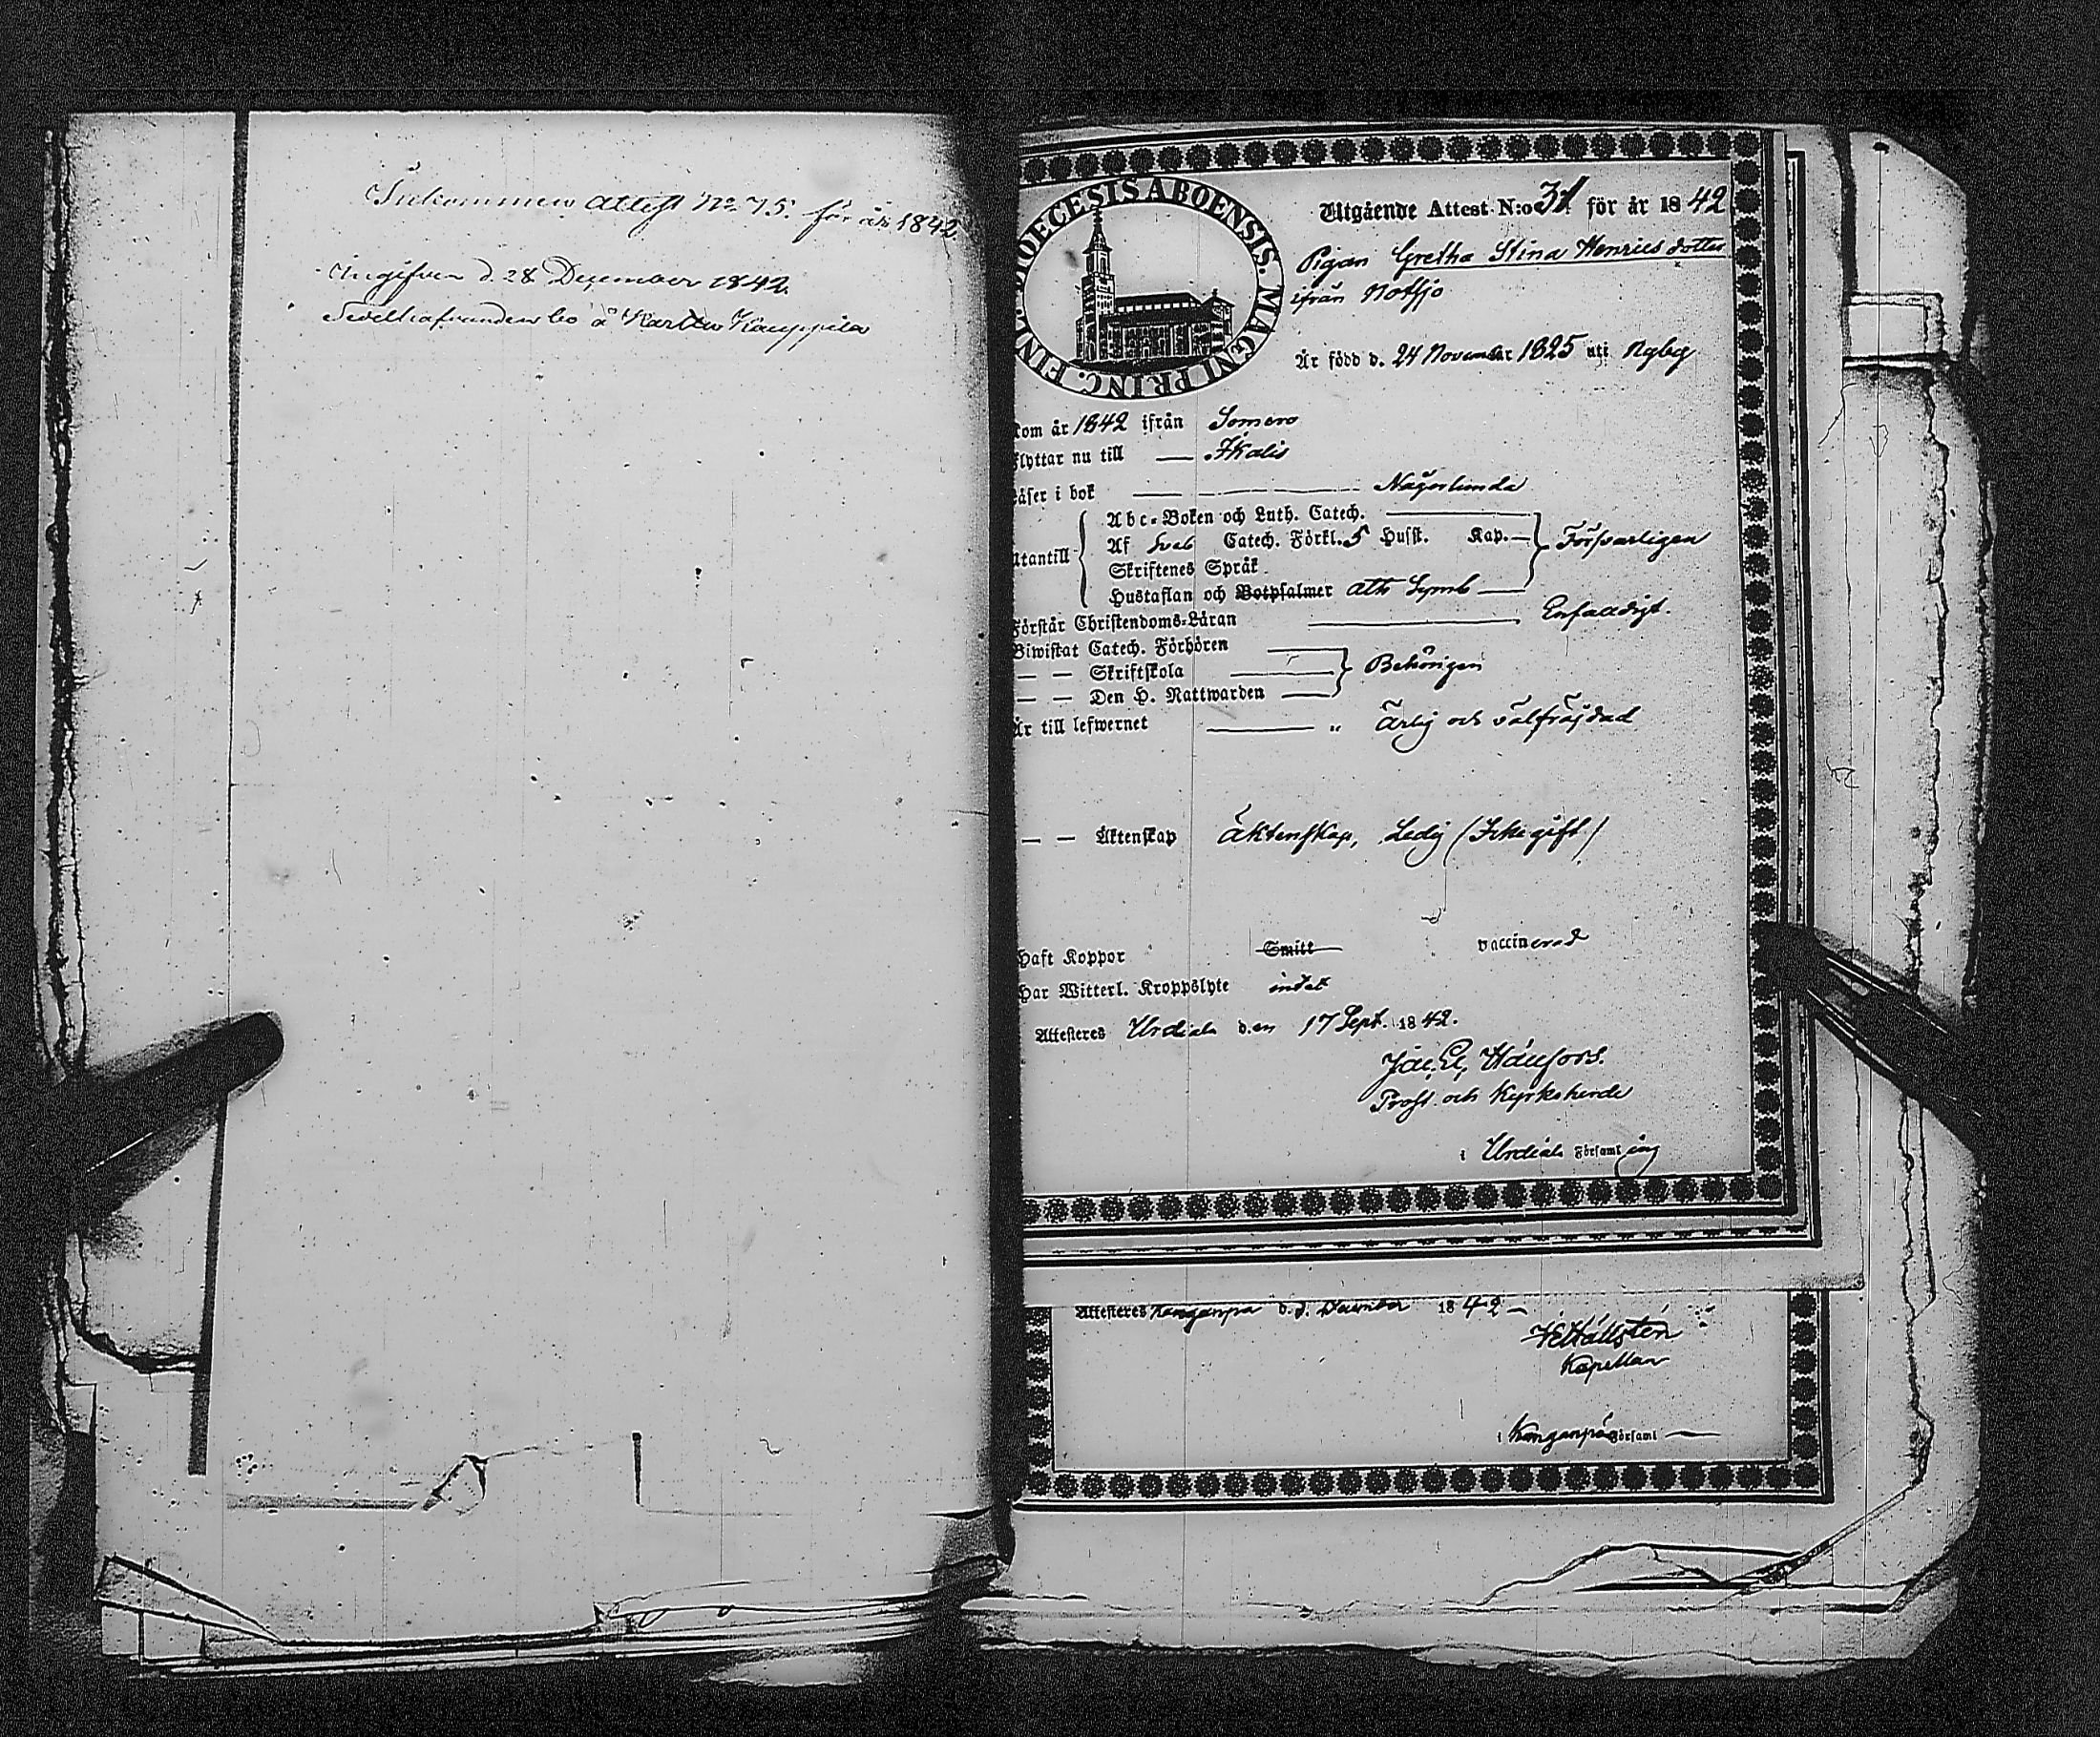 Inkommen attest No 75. för år 1842.
Ingifven d. 28 Dezember 1842.
bo å Kauppila
DIOECESIS ABOENSIS. MAGNI PRINC. FINL.
Utgående Attest N:o 31 för år 1842
Pigan Gretha Stina Henricsdotter
ifrån Notsjö
Är född d. 24 November 1825 uti Nyby
kom år 1842 ifrån Somero
flyttar nu till — Ikalis
läser i bok — — Någorlunda
Utantill
Abc-Boken och Luth. Catech.
Af Sveb Catech. Förkl. 5 Husst. Kap. — Försvarligen
Skriftenes Språk
Hustaflan och Botpsalmer Ath Symb —
Förstår Christendoms-Läran — Enfaldigt.
Biwistat Catech. Förhören
— — Skriftskola — Behörigen
— — Den H. Nattwarden —
Är till lefwernet — „ ärlig och välfräjdad
— — Äktenskap äktenskap, Ledig (Icke gift)
Haft Koppor Smitt vaccinerad
Har Witterl. Kroppslyte intet
Attesteras Urdiala den 17 Sept. 1842.
Prost och Kyrkoherde
i Urdiala Församling
Attesteras Kanganpä d. December 1842 —
Hällstén
Kapellan
i Kanganpä Församl —